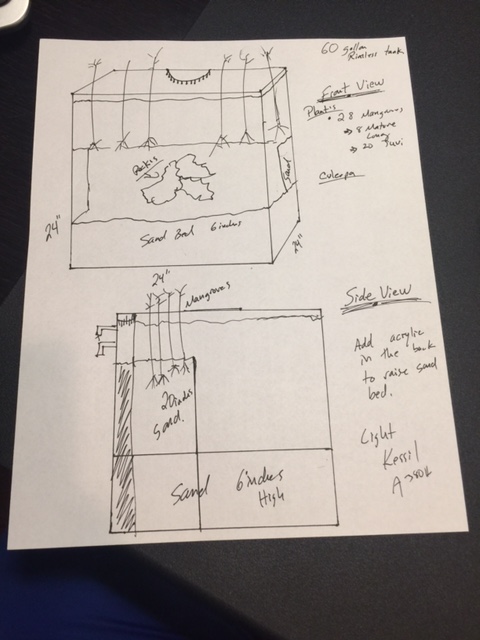 60 gallon
Rimless tank
Front View
Plants
• 28 Mangroves
→ 8 Mature
→ 20 Juvi
Rocks
Sand
Sand Bed 6 inches
24"
24"
24"
Mangroves
Side View
Add acrylic
in the back
to raise sand
bed.
20 inches
Sand.
Sand 6 inches
High
Light
Kessil